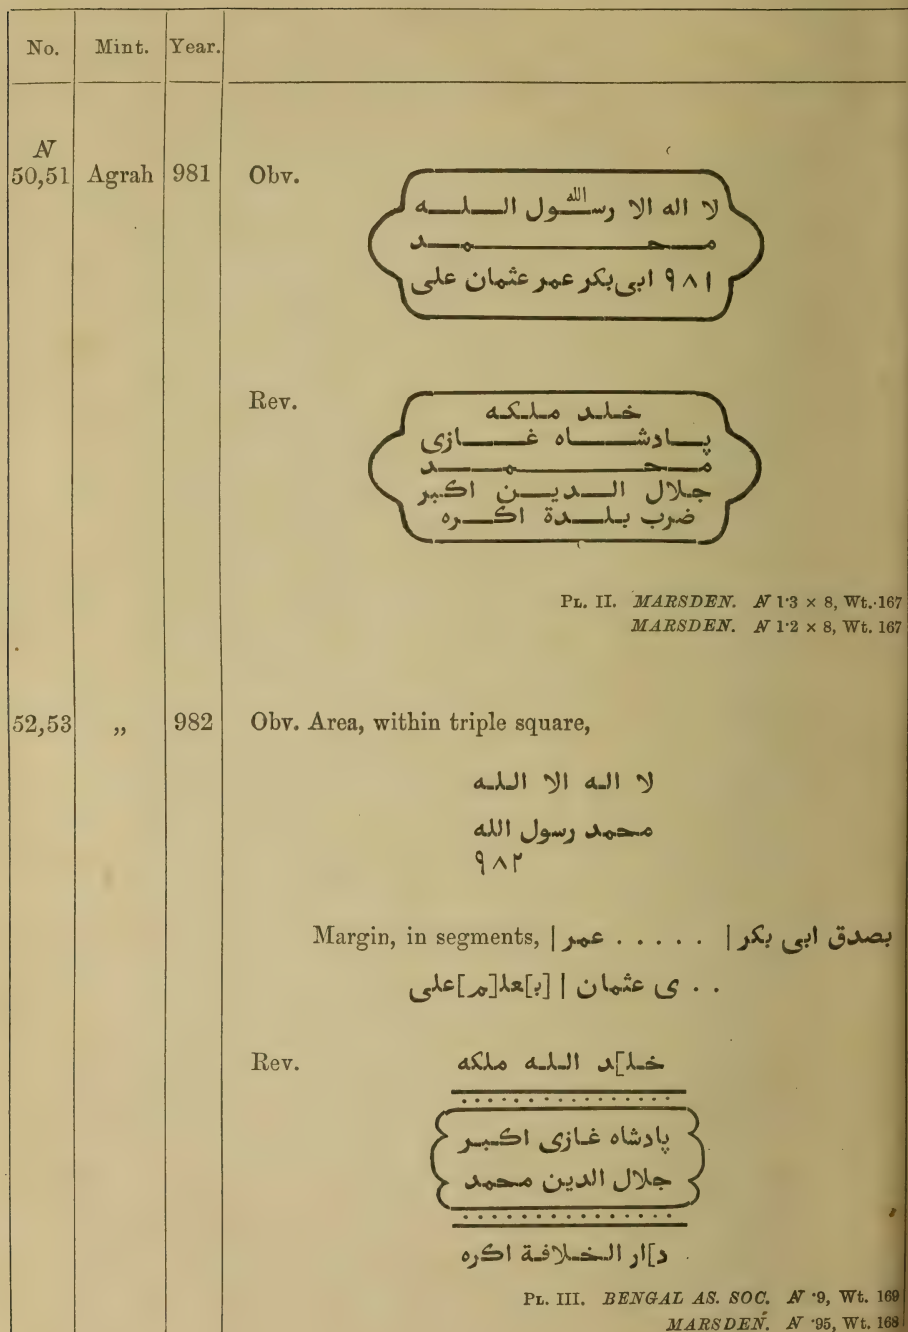 No. Mint. Year.
N
50,51 Agrah 981 Obv.
لا اله الا الله رسول الله
محمد
۹۸۱ ابی بکر عمر عثمان علی
Rev.
خلد ملکه
پادشاه غازی
محمد
جلال الدین اکبر
ضرب بلدة اکره
PL. II. MARSDEN. N 1·3 × 8, Wt. 167
MARSDEN. N 1·2 × 8, Wt. 167
52,53 „ 982 Obv. Area, within triple square,
لا اله الا الله
محمد رسول الله
۹۸۲
Margin, in segments, بصدق ابی بکر | . . . . . عمر |
. . ی عثمان | [بـ]ـعلـ[ـم] علی
Rev.
خلـ]ـد الله ملکه
پادشاه غازی اکبر
جلال الدین محمد
د]ار الخلافة اکره
PL. III. BENGAL AS. SOC. N ·9, Wt. 169
MARSDEN. N ·95, Wt. 168